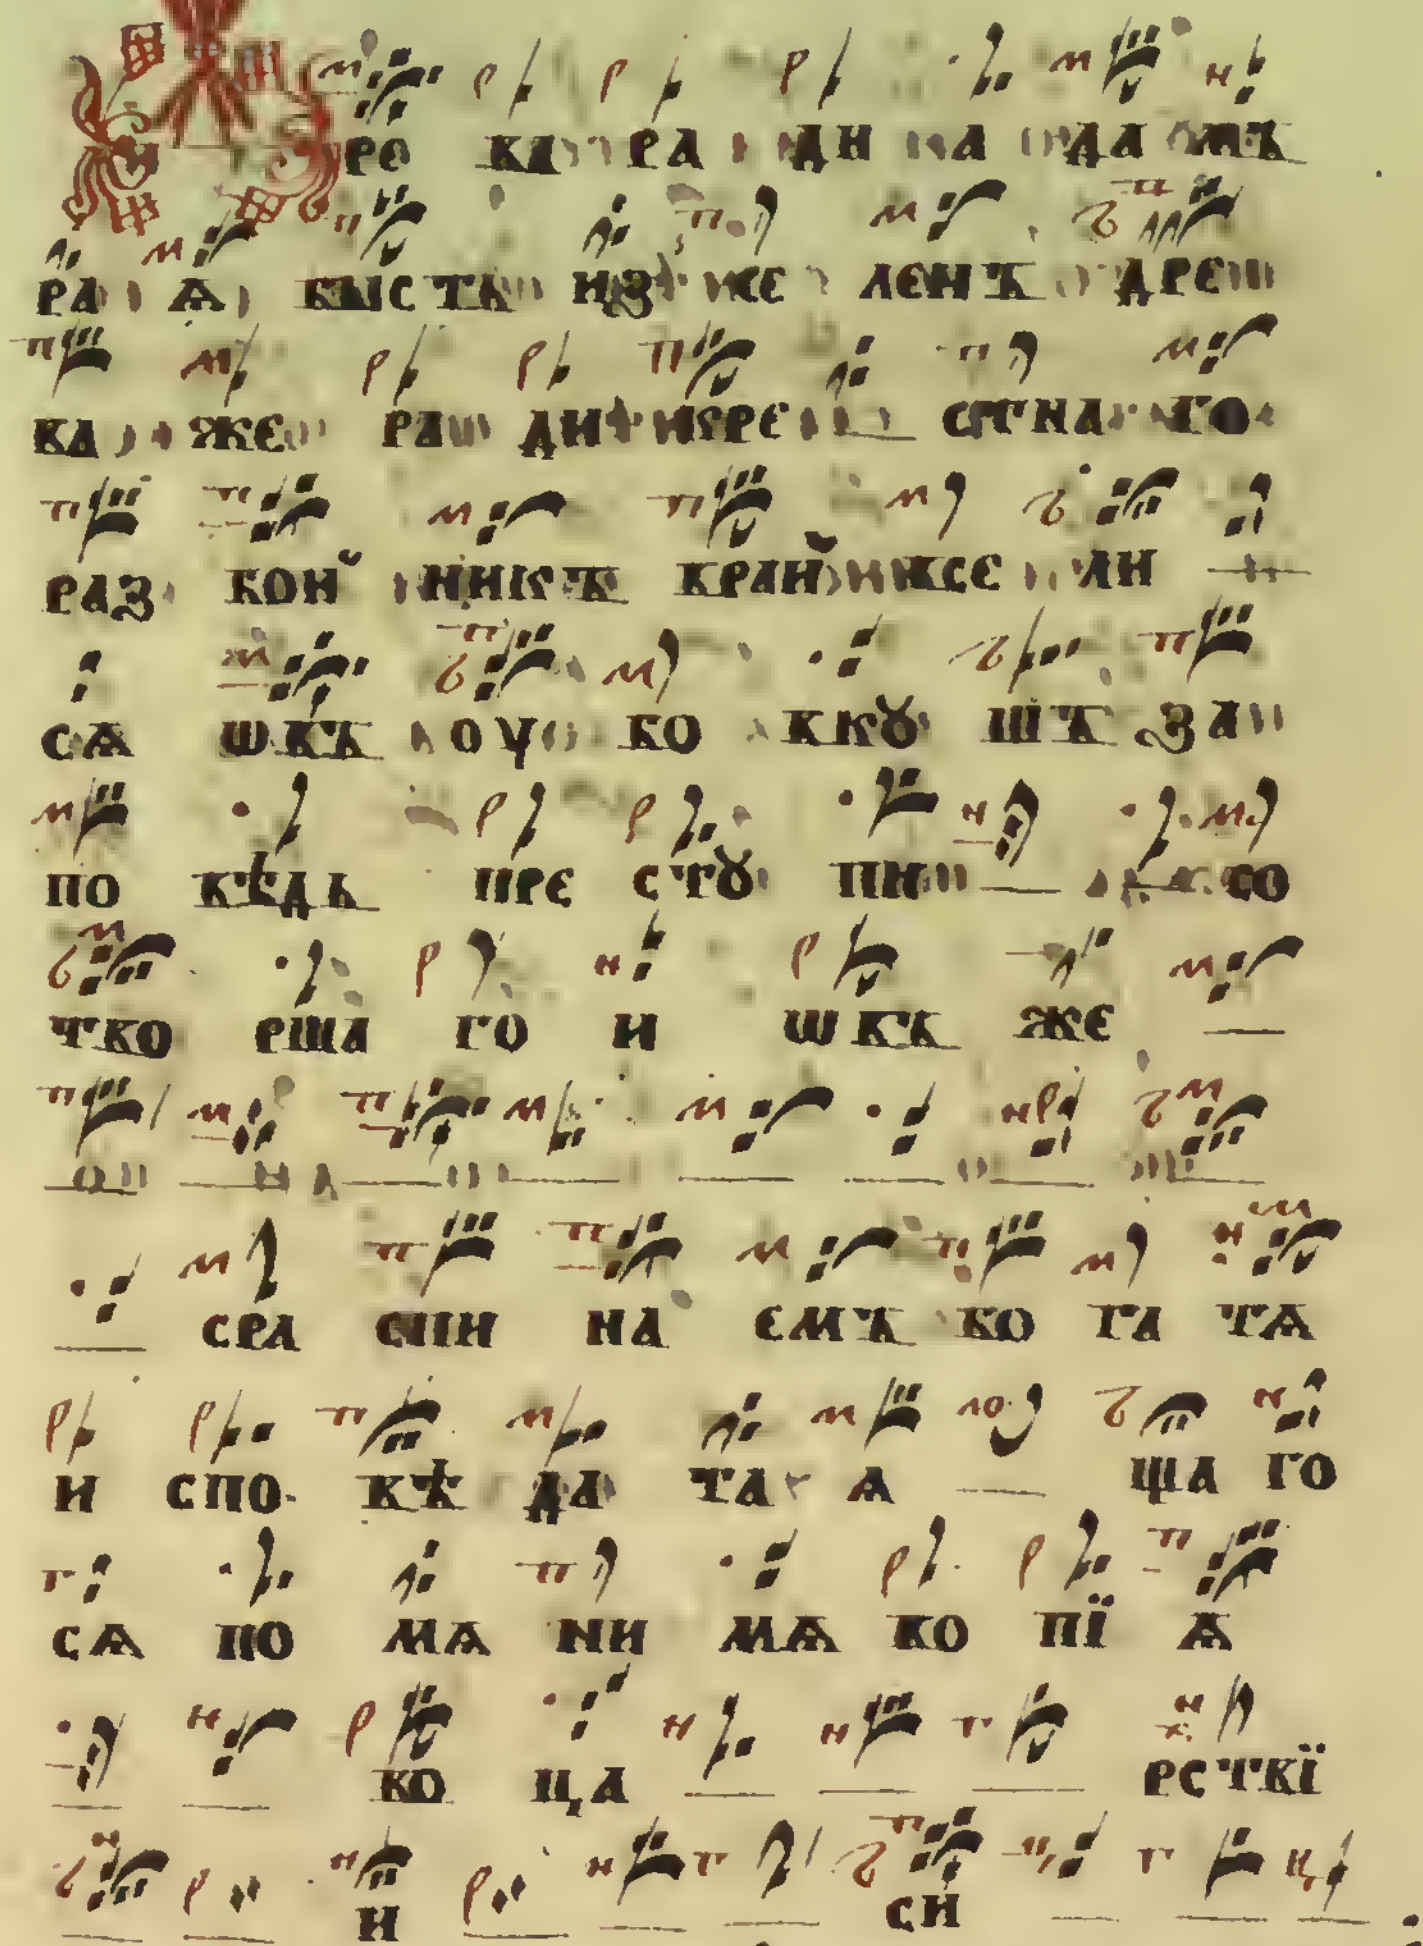 РО ВА РА ДИ НА ДА МЪ
РА Ѧ БЫСТЬ ИЗ СЕ ЛЕНЪ ДРЕ
ВА ЖЕ РА ДИ КРЕ СТНА ГО
РАЗ БОЙ НИКЪ ВРАЙ ВСЕ ЛИ
СѦ ѠВЪ ОУ БО ВКꙊ ШЪ ЗА
ПО ВѢДЬ ПРЕ СТꙊ ПИ СО
ТВО РША ГО И ѠВЪ ЖЕ
СРА СПИ НА ЕМЪ БО ГА ТѦ
И СПО ВѢ ДА ТА Ѧ ЩА ГО
СѦ ПО МѦ НИ МѦ ВО ПЇ Ѧ
ВО ЦА РСТВЇ
И СИ